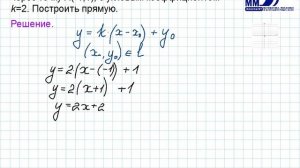 k=2. Построить прямую.
Решение.
y = k(x-x₀) + y₀
(x, y₀) ∈ l
y = 2(x-(-1)) + 1
y = 2(x+1) + 1
y = 2x+2